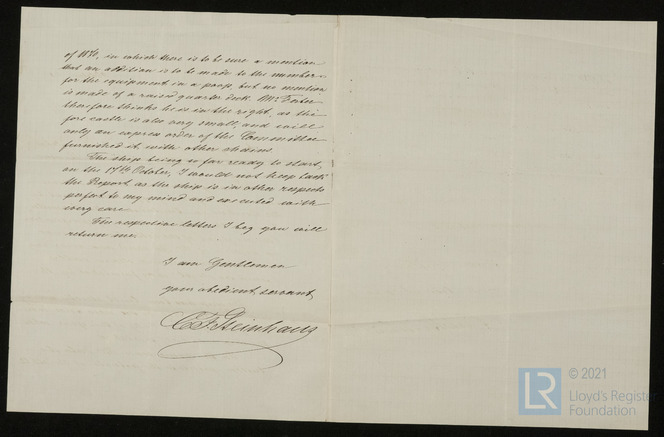 in which there is to be sure a mention
that an addition is to be made to the number
for the equipment in a poop, but no mention
is made of a raised quarter deck. Mr
therefore thinks he is in the right, as the
fore castle is also very small, and will
only on express order of the Committee
furnished it with other
The ship being so far ready to start,
on the 17th October, I would not keep back
the Report, as the ship is in other respects
perfect to my mind and executed with
every care.
The respective letters I beg you will
return me.
I am Gentlemen
your obedient servant,
C F Steinhaus
LR
© 2021
Lloyd's Register
Foundation